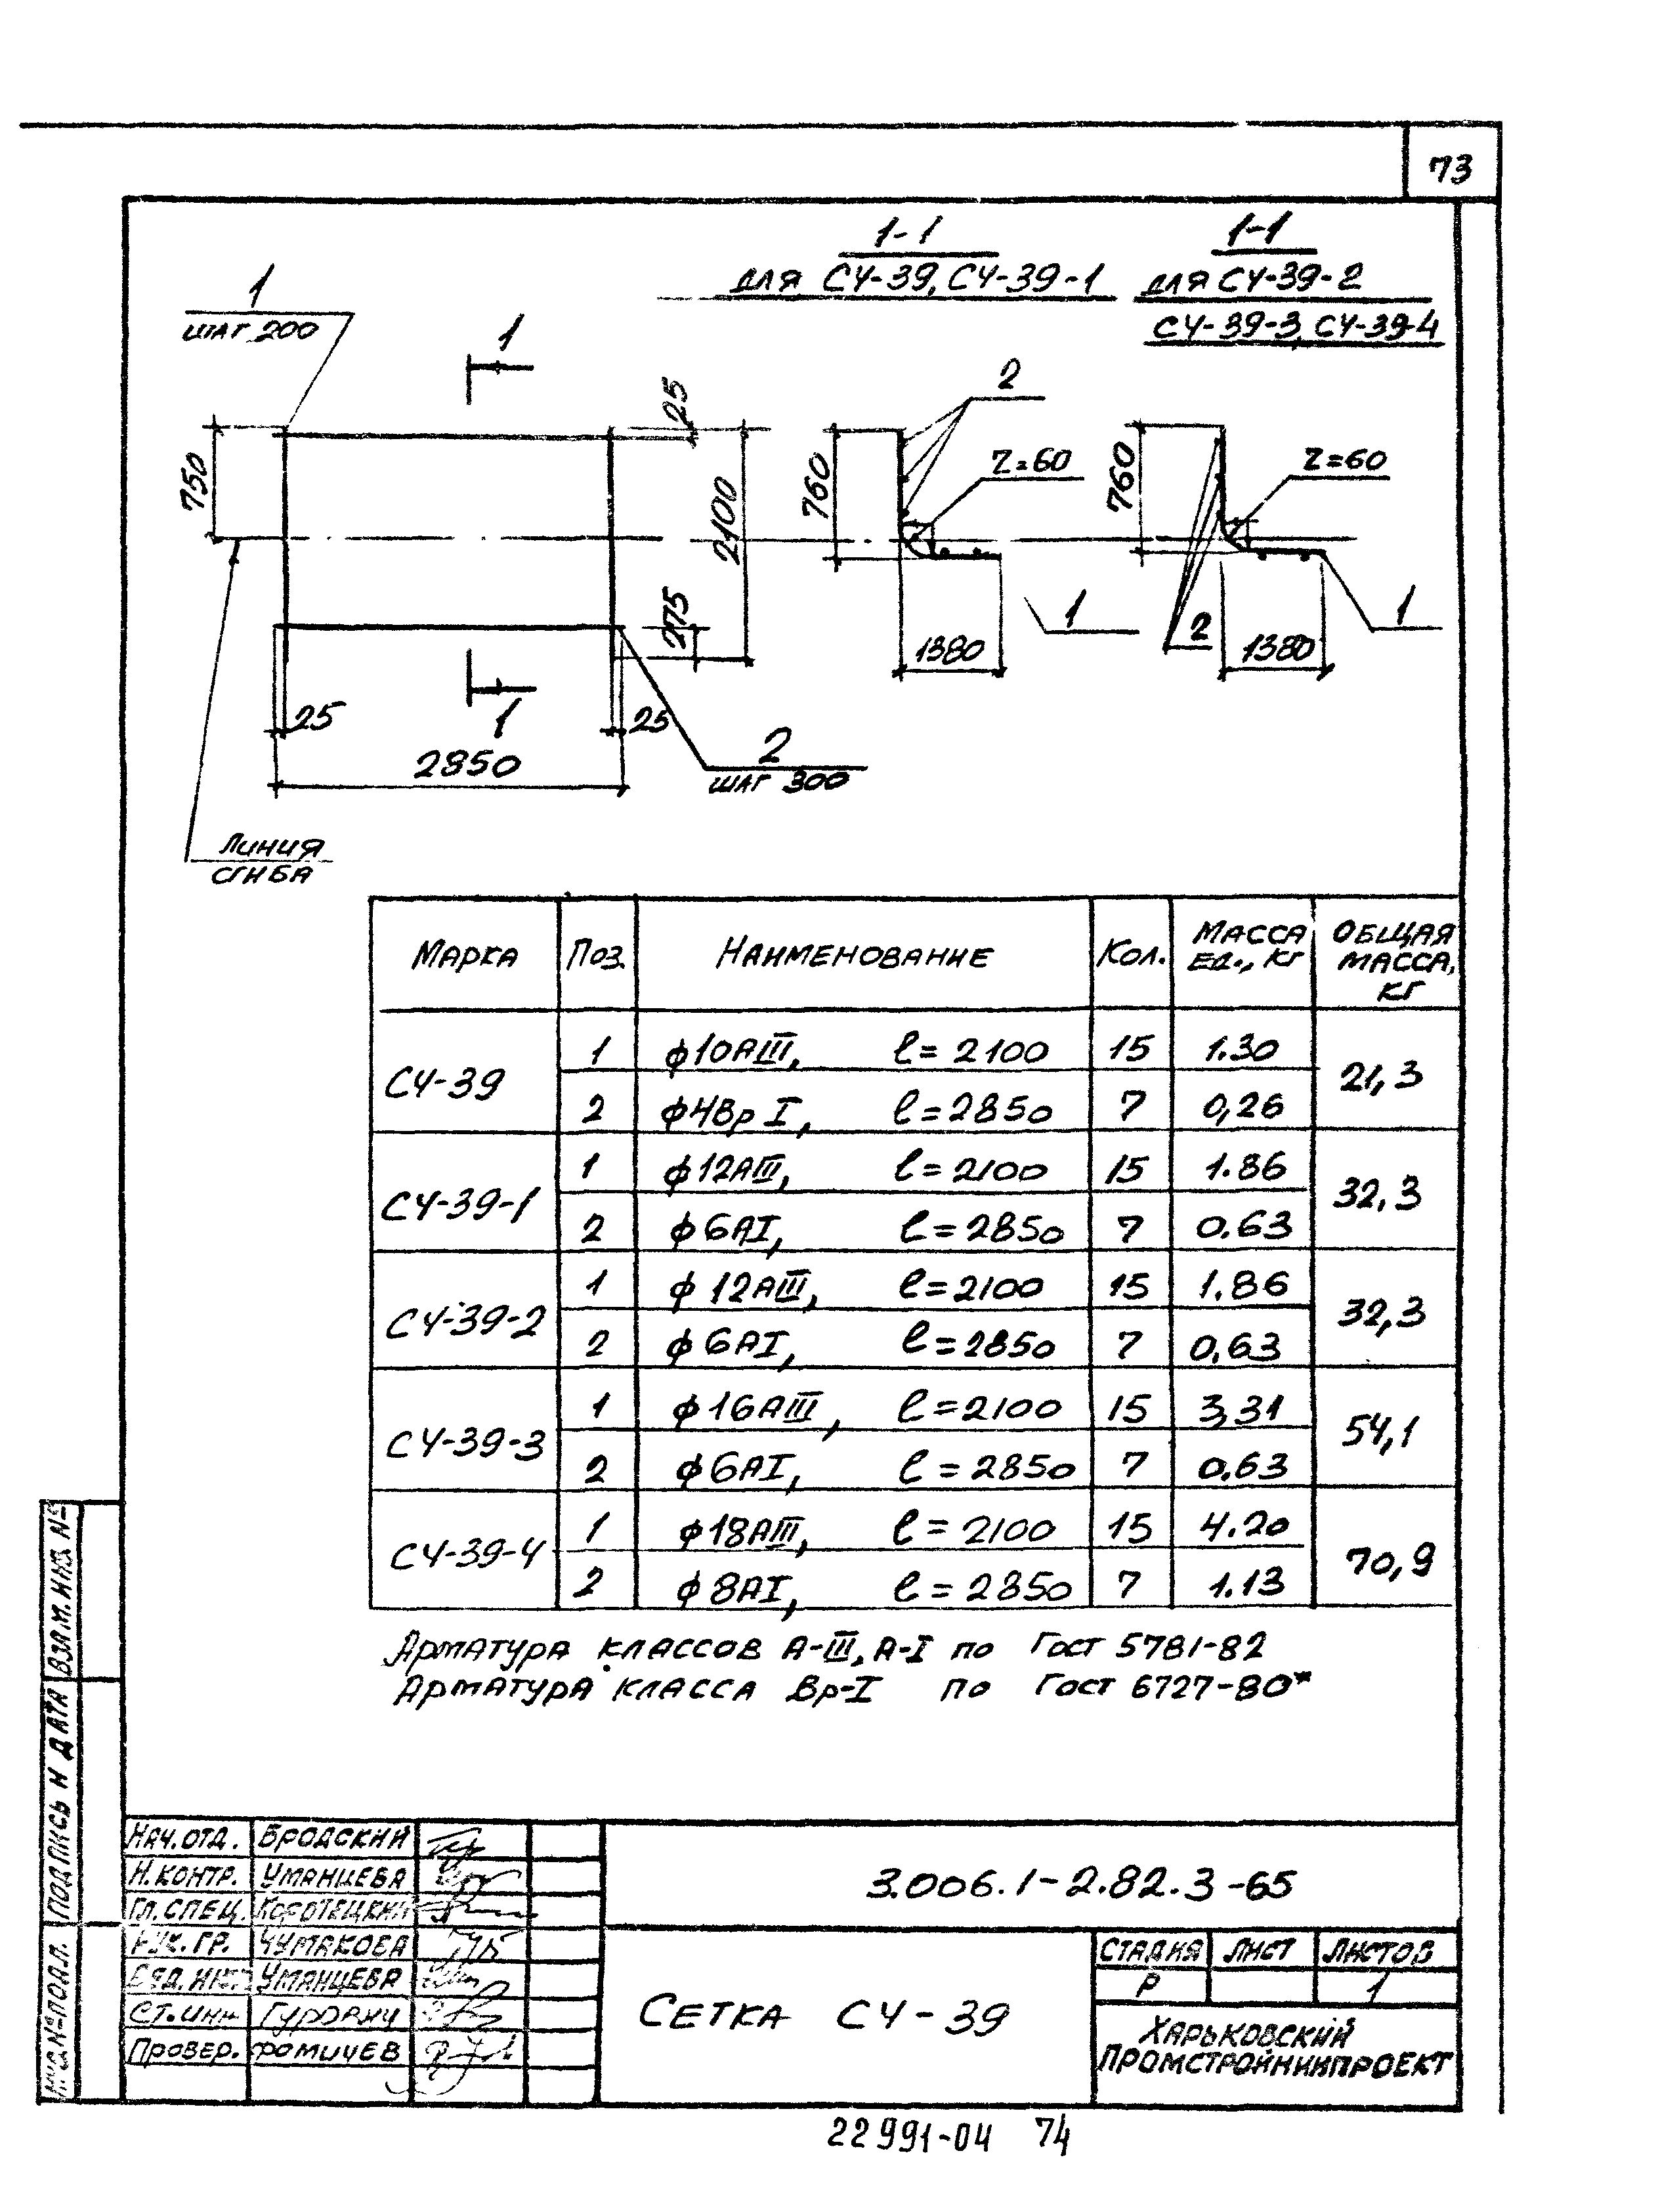 73
1-1
для СЧ-39, СЧ-39-1
1-1
для СЧ-39-2
СЧ-39-3, СЧ-39-4
1
шаг 200
1
25
750
2100
275
25
25
2850
1
2
шаг 300
линия
сгиба
2
760
r=60
1
1380
760
r=60
2
1
1380
Марка Поз. Наименование Кол. Масса ед., кг Общая масса, кг
СЧ-39 1 ф10АIII, l=2100 15 1.30 21,3
2 ф4Вр I, l=2850 7 0,26
СЧ-39-1 1 ф12АIII, l=2100 15 1.86 32,3
2 ф6АI, l=2850 7 0.63
СЧ-39-2 1 ф12АIII, l=2100 15 1.86 32,3
2 ф6АI, l=2850 7 0,63
СЧ-39-3 1 ф16АIII, l=2100 15 3,31 54,1
2 ф6АI, l=2850 7 0.63
СЧ-39-4 1 ф18АIII, l=2100 15 4.20 70,9
2 ф8АI, l=2850 7 1.13
Арматура классов А-III, А-I по Гост 5781-82
Арматура класса Вр-I по Гост 6727-80*
Взам. инв. №
Подпись и дата
Инв.№ подл.
Нач. отд. Бродский
Н. контр. Уманцева
Гл. спец. Коротецкий
Рук. гр. Чумакова
Вед. инж. Уманцева
Ст. инж
Провер. Фомичев
3.006.1-2.82.3-65
Сетка СЧ-39
Стадия Лист Листов
Р 1
Харьковский
Промстройниипроект
22991-04 74